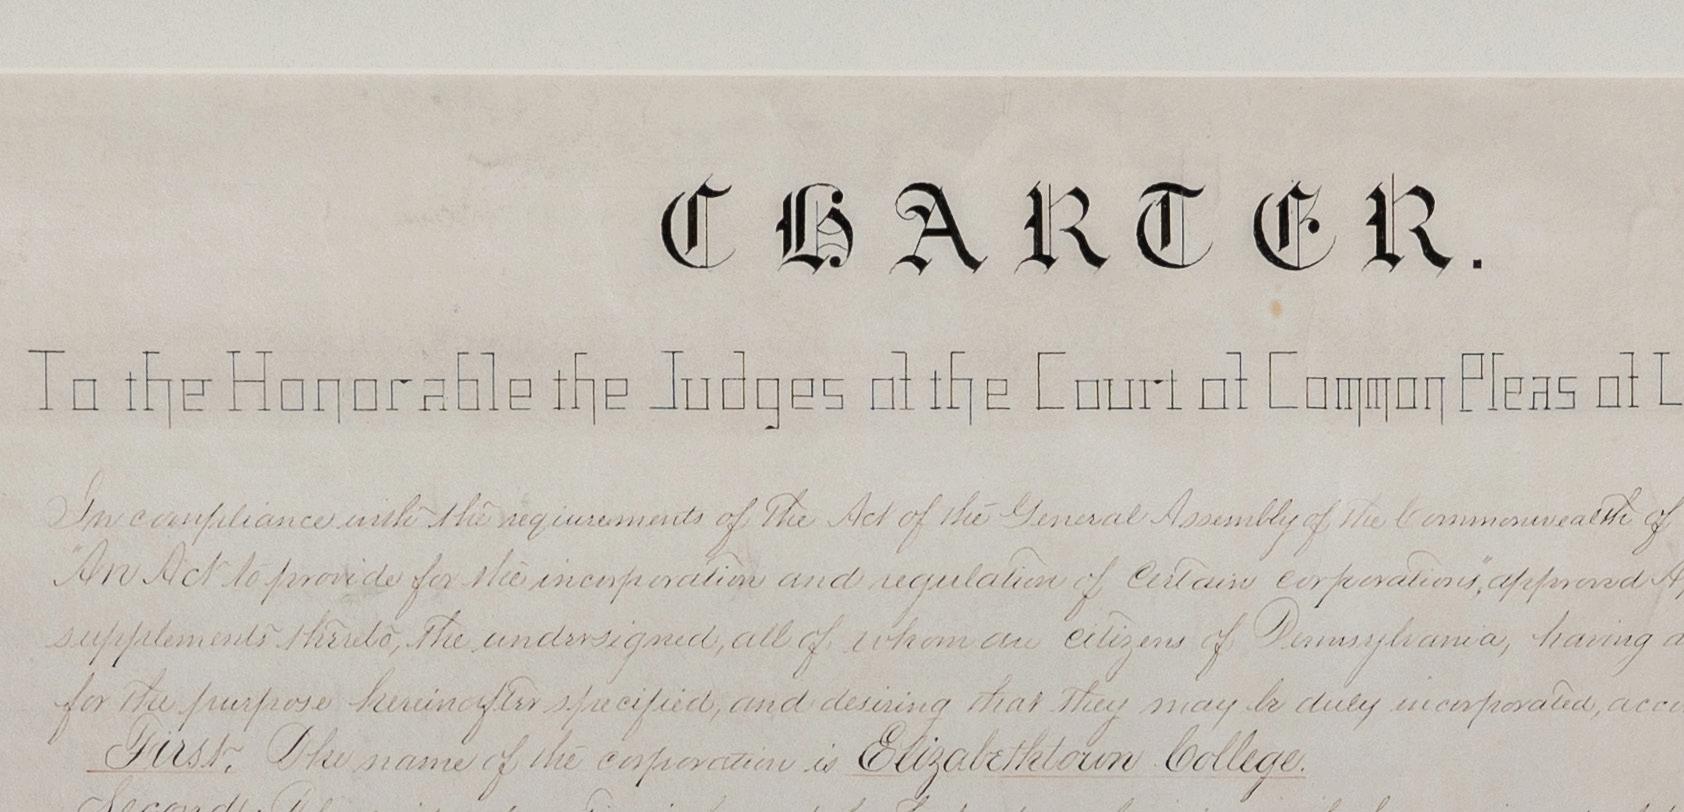 CHARTER.
To the Honorable the Judges of the Court of Common Pleas of L
In compliance with the requirements of the Act of the General Assembly of the Commonwealth of
"An Act to provide for the incorporation and regulation of certain corporations", approved Ap
supplements thereto, the undersigned, all of whom are citizens of Pennsylvania, having a
for the purpose hereinafter specified, and desiring that they may be duly incorporated, acco
First. The name of the corporation is Elizabethtown College.
Second: